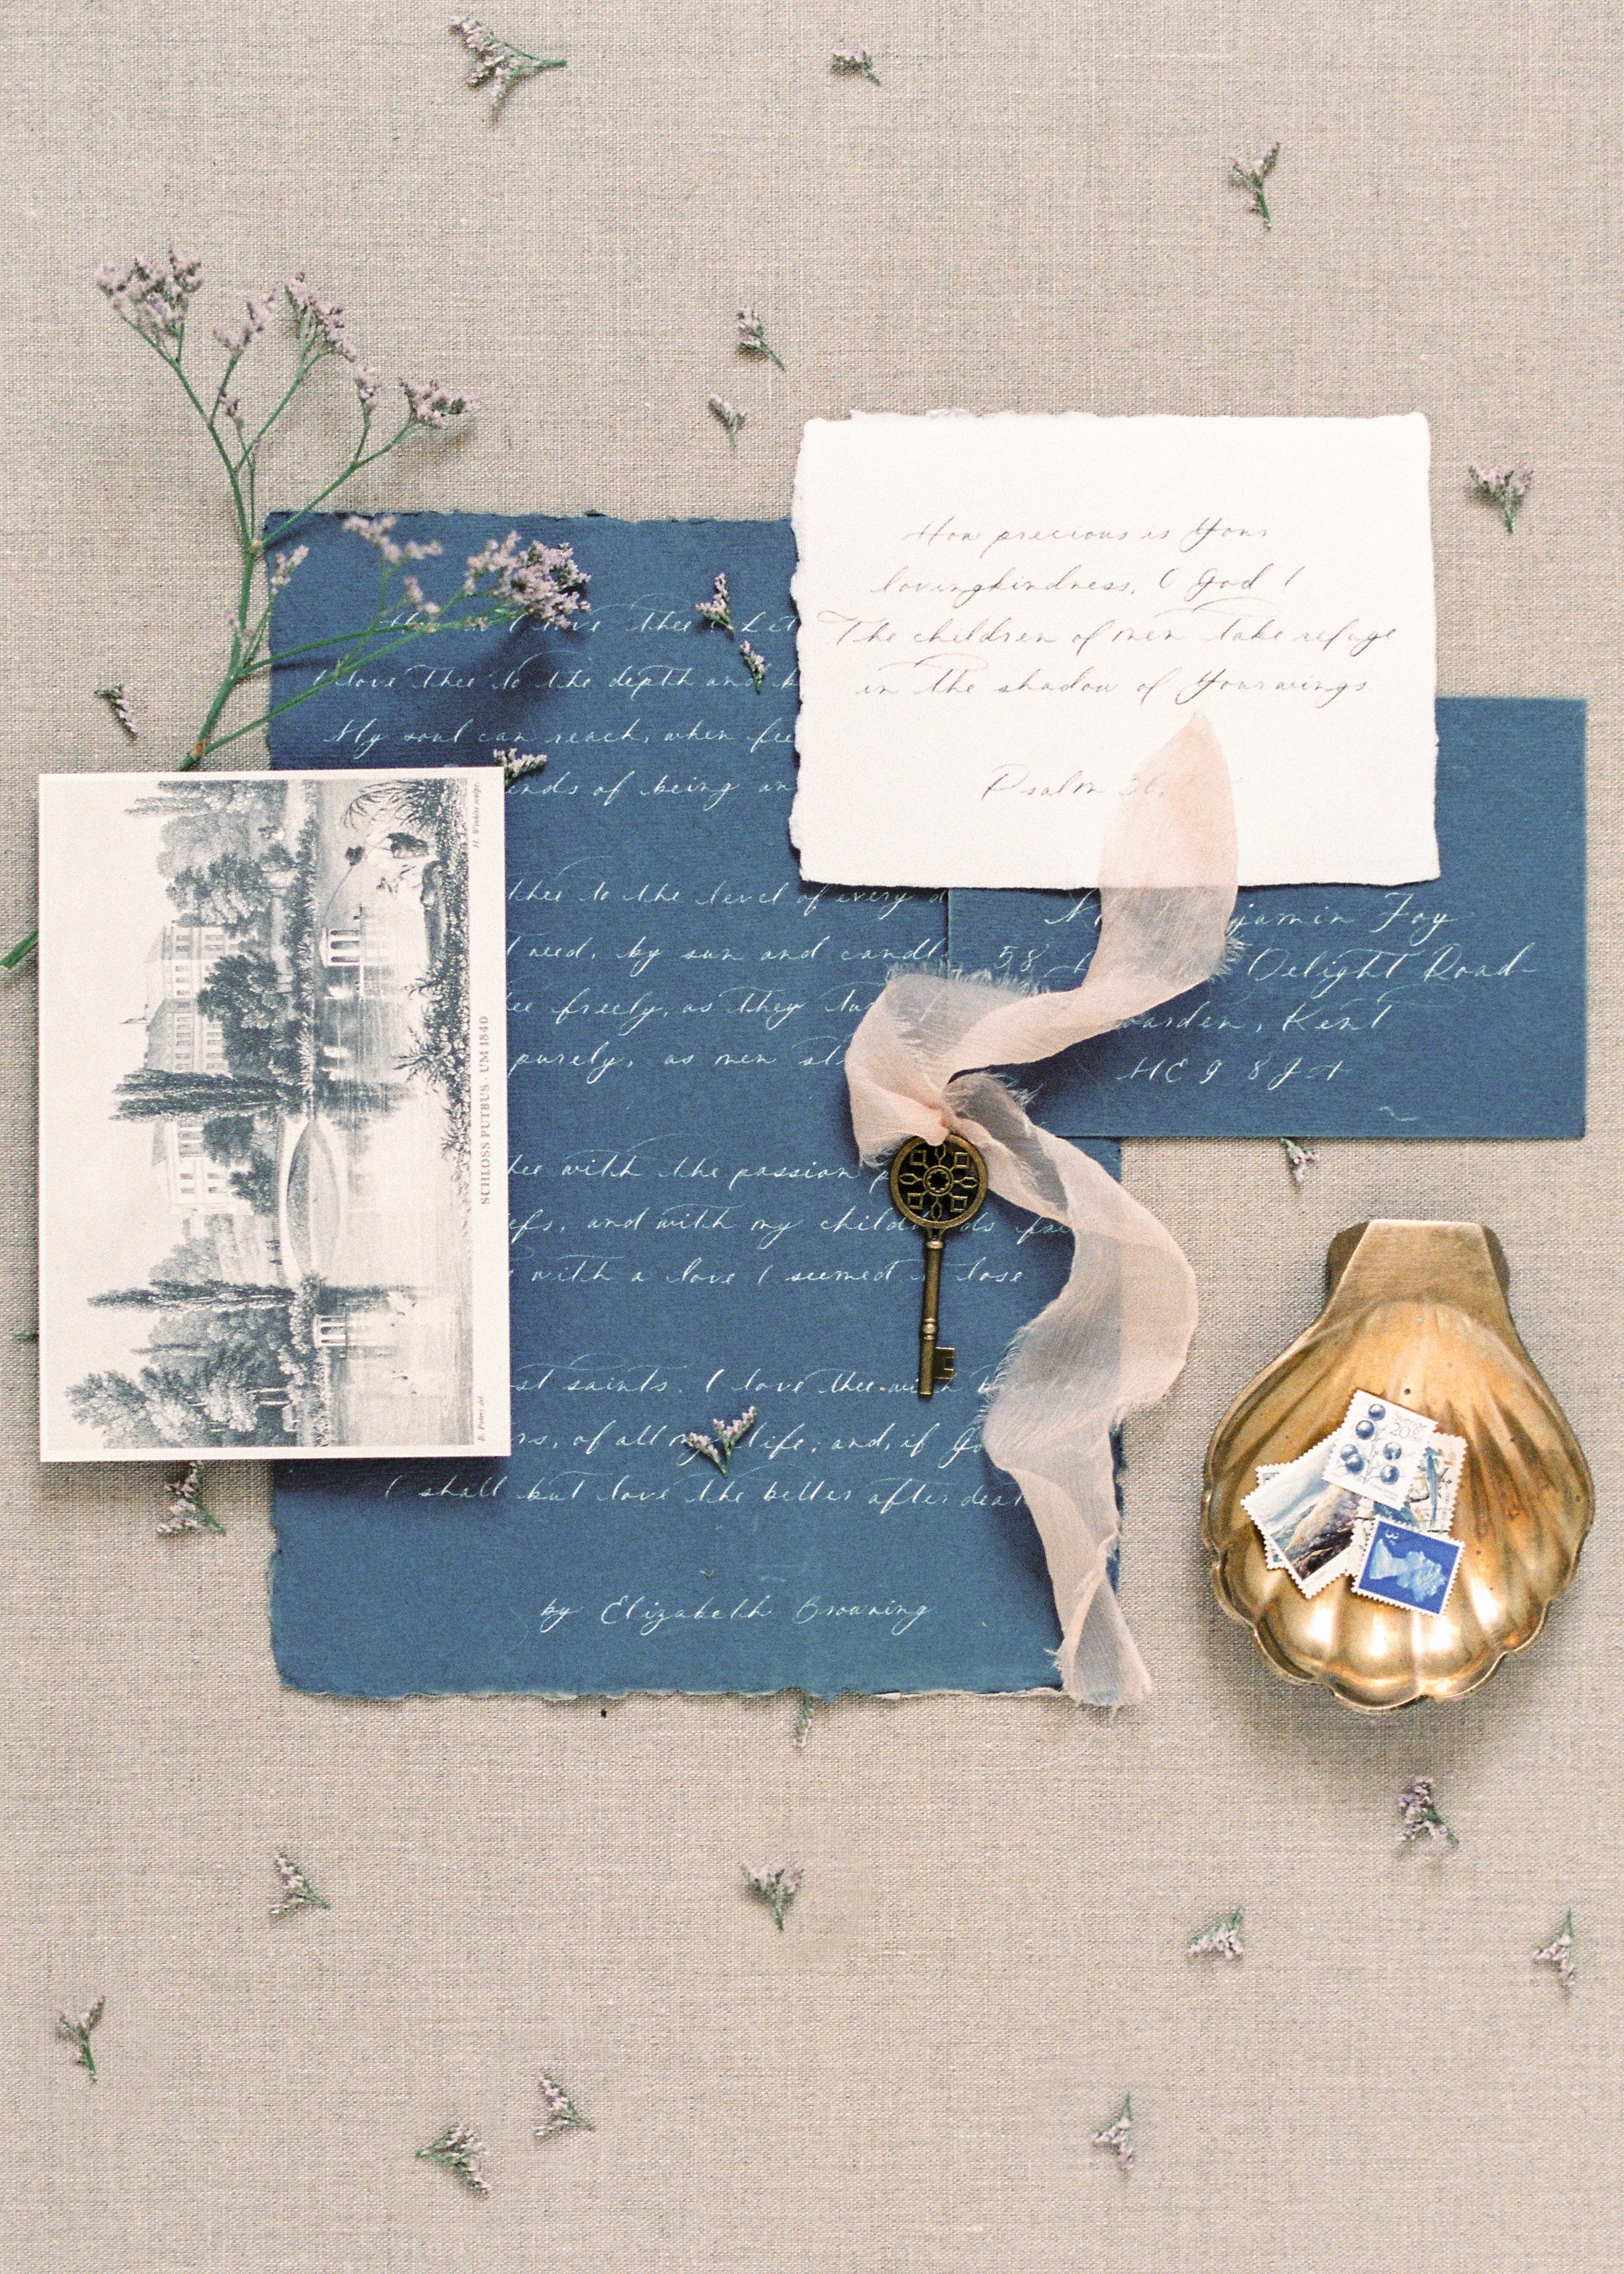 How precious is Your
lovingkindness, O God!
The children of men take refuge
in the shadow of Your wings.
Psalm 36:
love thee Let
I love thee to the depth and b
My soul can reach, when fee
nds of being an
thee to the level of every d
need, by sun and candl
ee freely, as they tu
purely, as men st
hee with the passion p
efs, and with my child ds fai
with a love I seemed to lose
st saints. I love thee with b
rs, of all my life; and, if Go
I shall but love the better after deat
by Elizabeth Browning
jamin Foy
58 Delight Road
arden, Kent
HE9 8JH
SCHLOSS PUTBUS UM 1840
Sverige
20
3P